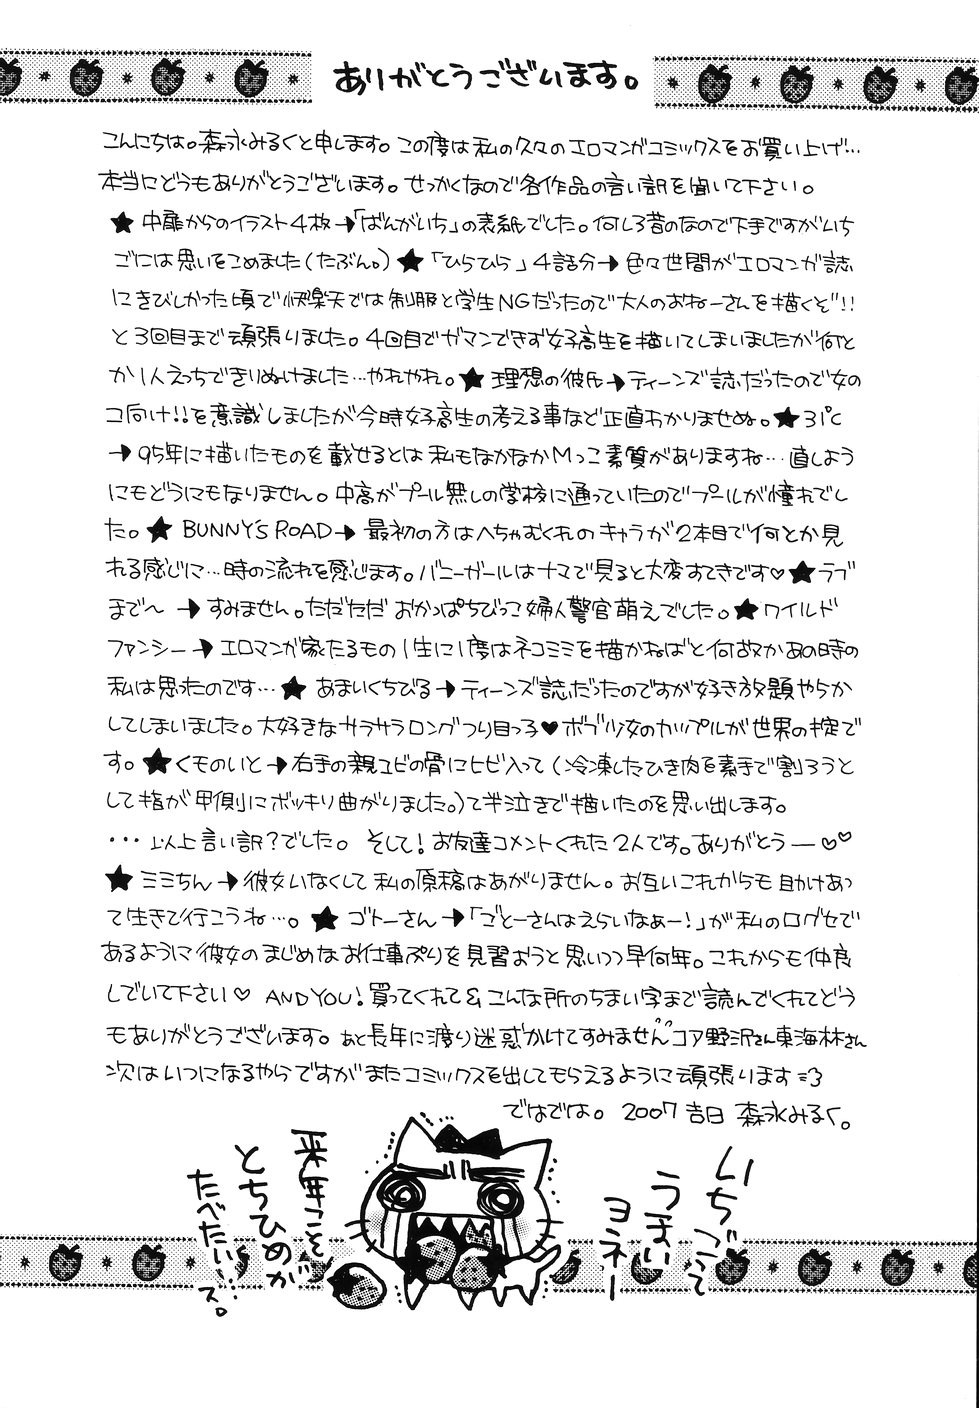 ありがとうございます。
こんにちは。森永みるくと申します。この度は私の久々のエロマンガコミックスをお買い上げ…
本当にどうもありがとうございます。せっかくなので各作品の言い訳を聞いて下さい。
★中扉からのイラスト4枚→「ばんがいち」の表紙でした。何しろ昔のなので下手ですがいち
ごには思いをこめました(たぶん。)★「ひらひら」4話分→色々世間がエロマンガ誌
にきびしかった頃で快楽天では制服と学生NGだったので大人のおねーさんを描くぞ!!
と3回目まで頑張りました。4回目でガマンできず女子高生を描いてしまいましたが何と
か1人えっちできりぬけました…やれやれ。★理想の彼氏→ティーンズ誌だったので女の
コ向け!!を意識しましたが今時女子高生の考える事など正直わかりませぬ。★31℃
→95年に描いたものを載せるとは私もなかなかMっこ素質がありますね…直しよう
にもどうにもなりません。中高がプール無しの学校に通っていたのでプールが憧れでし
た。★BUNNY'S ROAD→最初の方はへちゃむくれのキャラが2本目で何とか見
れる感じに…時の流れを感じます。バニーガールはナマで見ると大変すてきです♡★ラブ
まで〜→すみません。ただただおかっぱちびっこ婦人警官萌えでした。★ワイルド
ファンシー→エロマンガ家たるもの1生に1度はネコミミを描かねばと何故かあの時の
私は思ったのです…★あまいくちびる→ティーンズ誌だったのですが好き放題やらか
してしまいました。大好きなサラサラロングつり目っ子♥ボブ少女のカップルが世界の掟で
す。★くものいと→右手の親ユビの骨にヒビ入って(冷凍したひき肉を素手で割ろうと
して指が甲側にボッキリ曲がりました。)て半泣きで描いたのを思い出します。
・・・以上言い訳?でした。そして!お友達コメントくれた2人です。ありがとうー♡♡
★ミミちん→彼女いなくして私の原稿はあがりません。お互いこれからも助けあっ
て生きて行こうね…。★ゴトーさん→「ごとーさんはえらいなぁー!」が私の口グセで
あるように彼女のまじめなお仕事ぷりを見習おうと思いつつ早何年。これからも仲良
しでいて下さい♡ AND YOU!買ってくれて&こんな所のちまい字まで読んでくれてどう
もありがとうございます。あと長年に渡り迷惑かけてすみませんコア野沢さん東海林さん
次はいつになるやらですがまたコミックスを出してもらえるように頑張ります=3
ではでは。2007 吉日 森永みるく。
いちごって
うまい
ヨネー
来年こそ
とちひめが
たべたいい…
ズ。